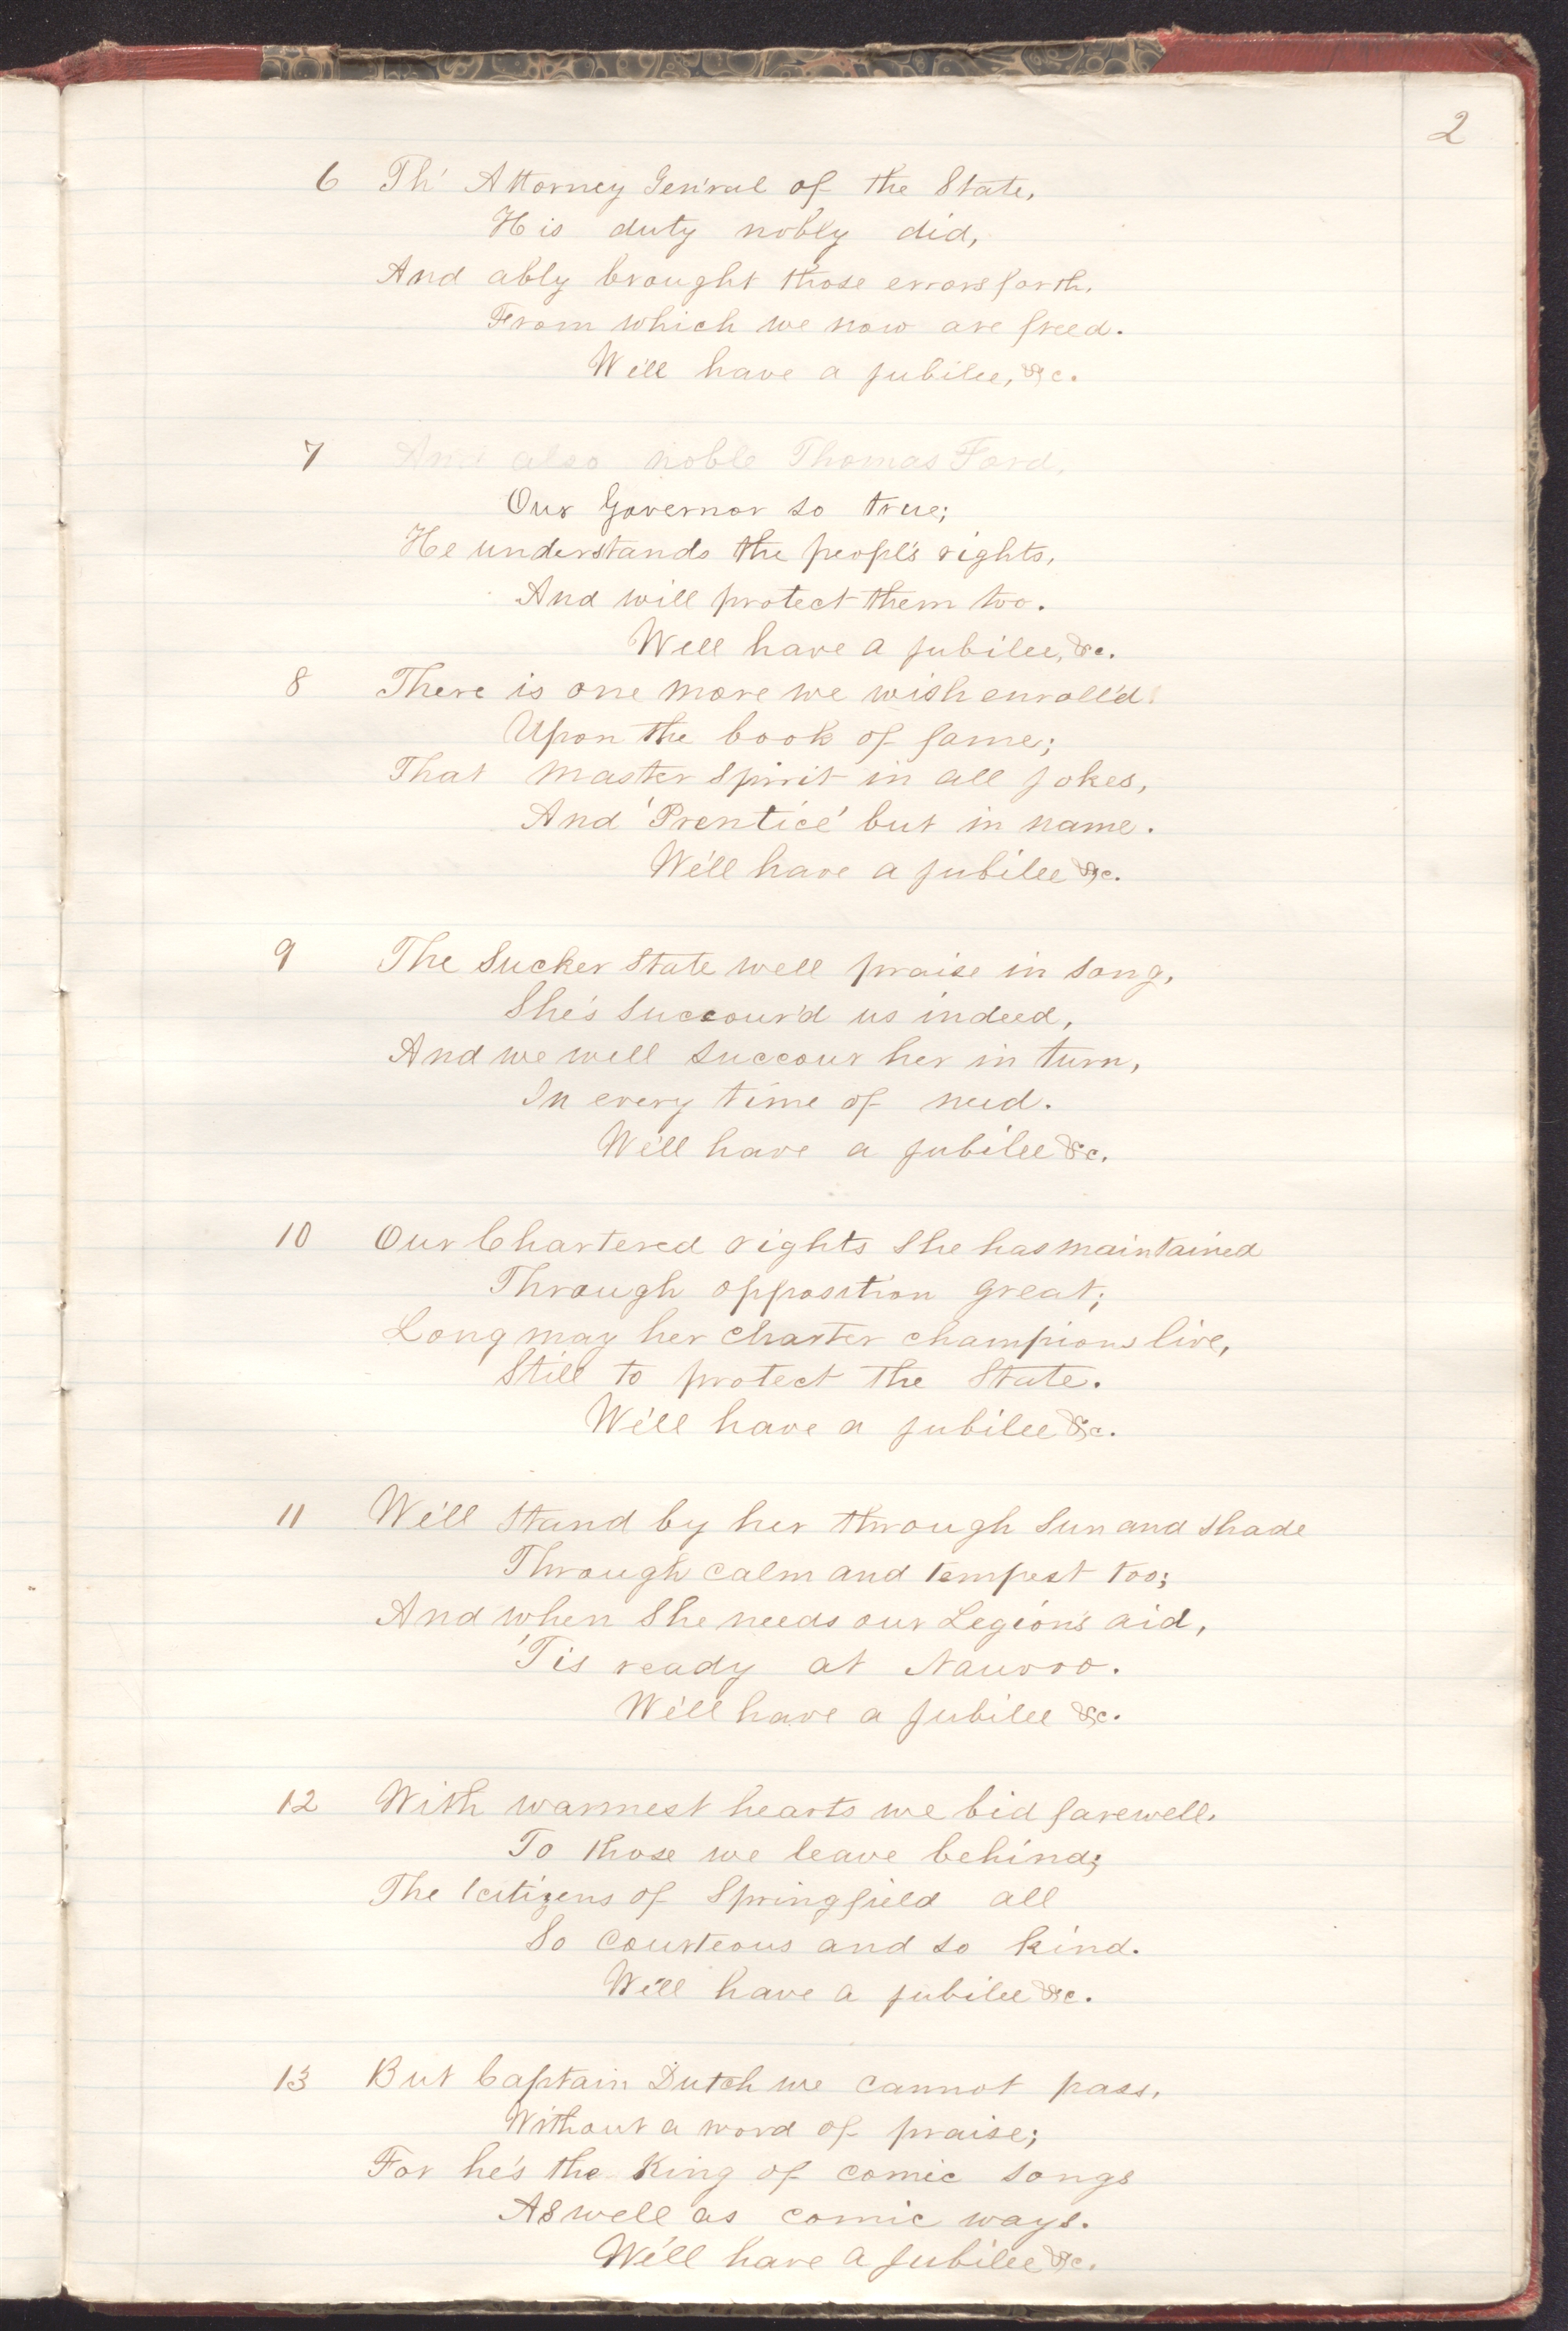 2
6 Th' Attorney Gen'ral of the State,
His duty nobly did,
And ably brought those errors forth,
From which we now are freed.
We'll have a jubilee, &c.
7 And also noble Thomas Ford,
Our Governor so true;
He understands the people's rights,
And will protect them too.
We'll have a jubilee, &c.
8 There is one more we wish enroll'd
Upon the book of fame;
That master spirit in all jokes,
And 'Prentice' but in name.
We'll have a jubilee &c.
9 The Sucker State we'll praise in song,
She's succour'd us indeed,
And we will succour her in turn,
In every time of need.
We'll have a jubilee &c.
10 Our Chartered rights she has maintained
Through opposition great;
Long may her charter champions live,
Still to protect the State.
We'll have a jubilee &c.
11 We'll stand by her through sun and shade
Through calm and tempest too;
And when she needs our Legion's aid,
'Tis ready at Nauvoo.
We'll have a jubilee &c.
12 With warmest hearts we bid farewell,
To those we leave behind;
The citizens of Springfield all
So courteous and so kind.
We'll have a jubilee &c.
13 But Captain Dutch we cannot pass,
Without a word of praise;
For he's the King of comic songs
As well as comic ways.
We'll have a jubilee &c.